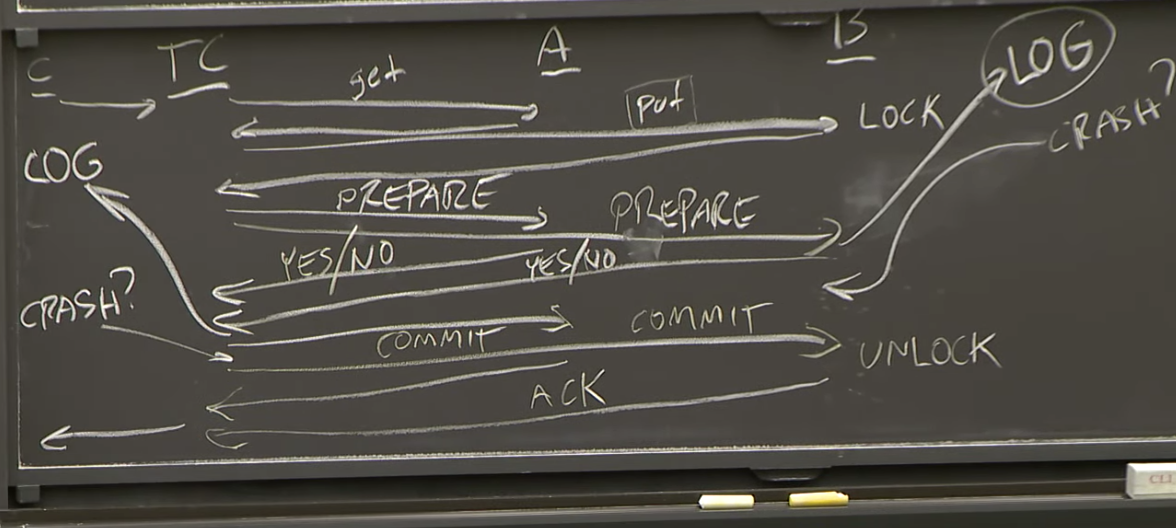 C TC A B LOG
get
put LOCK CRASH?
LOG
PREPARE PREPARE
YES/NO YES/NO
CRASH?
COMMIT COMMIT
UNLOCK
ACK
CLI